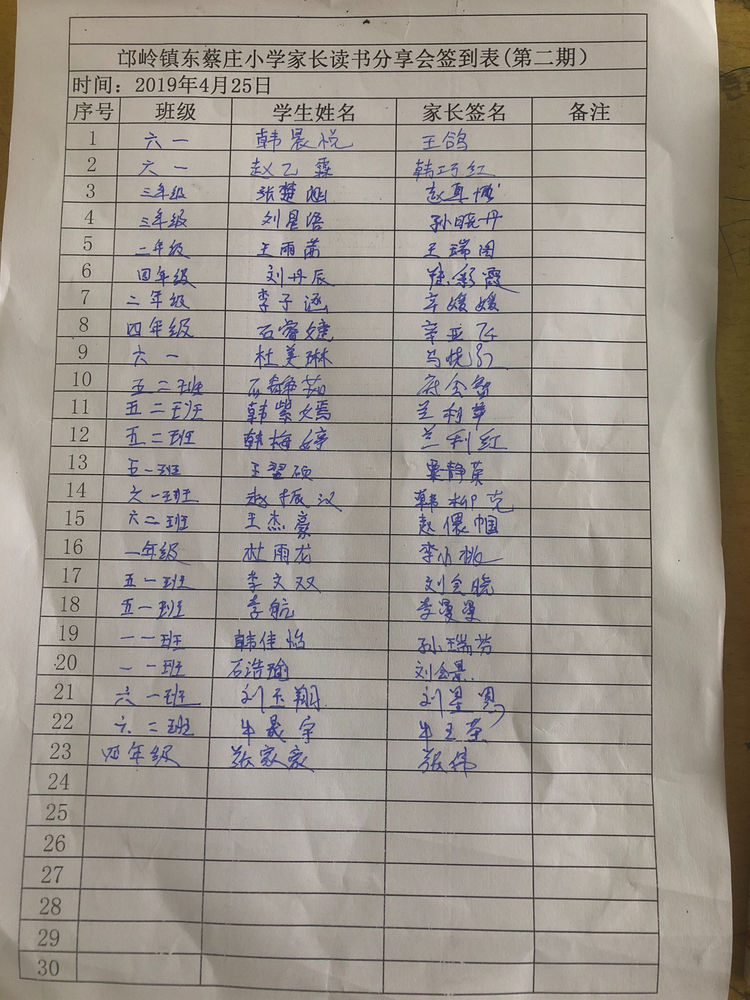 邙岭镇东蔡庄小学家长读书分享会签到表(第二期)
时间：2019年4月25日
序号 班级 学生姓名 家长签名 备注
1 六一 韩晨悦 王鸽
2 六一 赵乙霖 韩巧红
3 三年级 张楚
4 三年级 刘星语 孙晓丹
5 二年级 王雨萌 王瑞
6 四年级 刘丹辰 彩霞
7 二年级 李子涵 辛媛媛
8 四年级 石睿婕 辛亚
9 六一 杜美琳 马
10 五二班
11 五二班 韩紫嫣 兰利苹
12 五二班 韩梅婷 兰利红
13 五一班 王翌硕 静英
14 六一班 赵振汉 韩柳克
15 六二班 王杰豪 赵
16 一年级 杜雨龙 李小桃
17 五一班 李文双 刘会晓
18 五一班 李航 李漫漫
19 一一班 韩佳怡 孙瑞芬
20 一一班 石浩瑜 刘会景
21 六一班 刘玉翔 刘
22 六二班 牛晟宇 牛王荣
23 四年级 张家豪 张伟
24
25
26
27
28
29
30